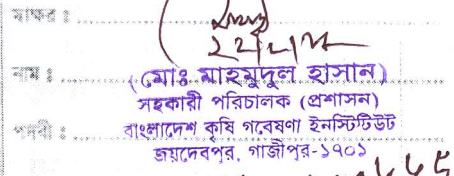 স্বাক্ষর :
নাম : (মোঃ মাহমুদুল হাসান)
সহকারী পরিচালক (প্রশাসন)
পদবী : বাংলাদেশ কৃষি গবেষণা ইনস্টিটিউট
জয়দেবপুর, গাজীপুর-১৭০১